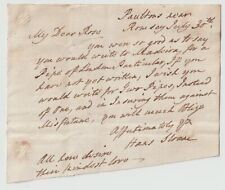 Paultons near
Romsey July 30th
My Dear Ross
you were so good as to say
you would write to Madeira, for a
Pipe of London Particular, if you
have not yet written, I wish you
would write for two Pipes, instead
of One, and in insuring them against
Misfortune, you will much oblige
Affectionately Yrs
Hans Sloane
All here desire
their kindest love